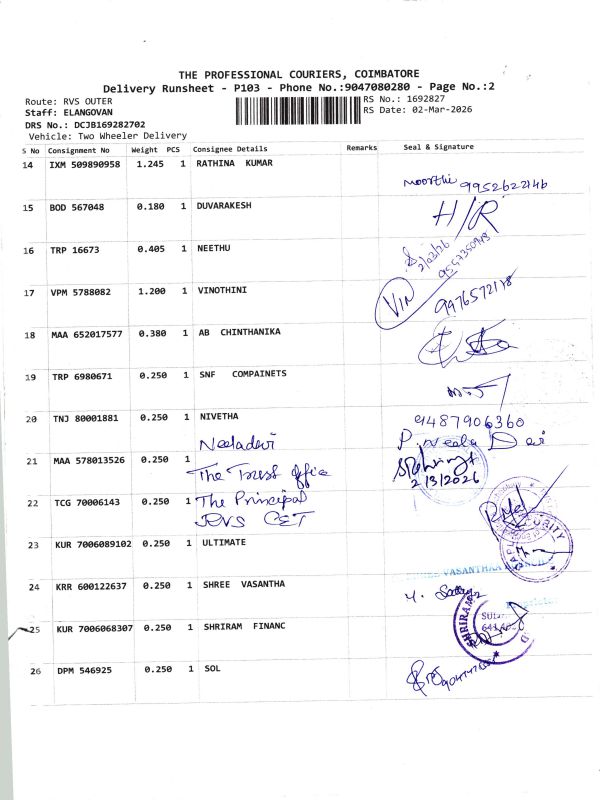 THE PROFESSIONAL COURIERS, COIMBATORE
Delivery Runsheet - P103 - Phone No.:9047080280 - Page No.:2
Route: RVS OUTER
RS No.: 1692827
Staff: ELANGOVAN
RS Date: 02-Mar-2026
DRS No.: DCJB169282702
Vehicle: Two Wheeler Delivery
S No Consignment No Weight PCS Consignee Details Remarks Seal & Signature
14 IXM 509890958 1.245 1 RATHINA KUMAR
Moorthi 9952622146
15 BOD 567048 0.180 1 DUVARAKESH
H/R
16 TRP 16673 0.405 1 NEETHU
2/03/26
17 VPM 5788082 1.200 1 VINOTHINI
VIN 9976572118
18 MAA 652017577 0.380 1 AB CHINTHANIKA
19 TRP 6980671 0.250 1 SNF COMPAINETS
20 TNJ 80001881 0.250 1 NIVETHA
9487906360
Neeladevi
P. Neela Devi
21 MAA 578013526 0.250 1
The Trust office
2/3/2026
22 TCG 70006143 0.250 1 The Principal
RVS CET
23 KUR 7006089102 0.250 1 ULTIMATE
SECURITY
VASANTHAA
24 KRR 600122637 0.250 1 SHREE VASANTHA
25 KUR 7006068307 0.250 1 SHRIRAM FINANC
SHRIRAM
26 DPM 546925 0.250 1 SOL